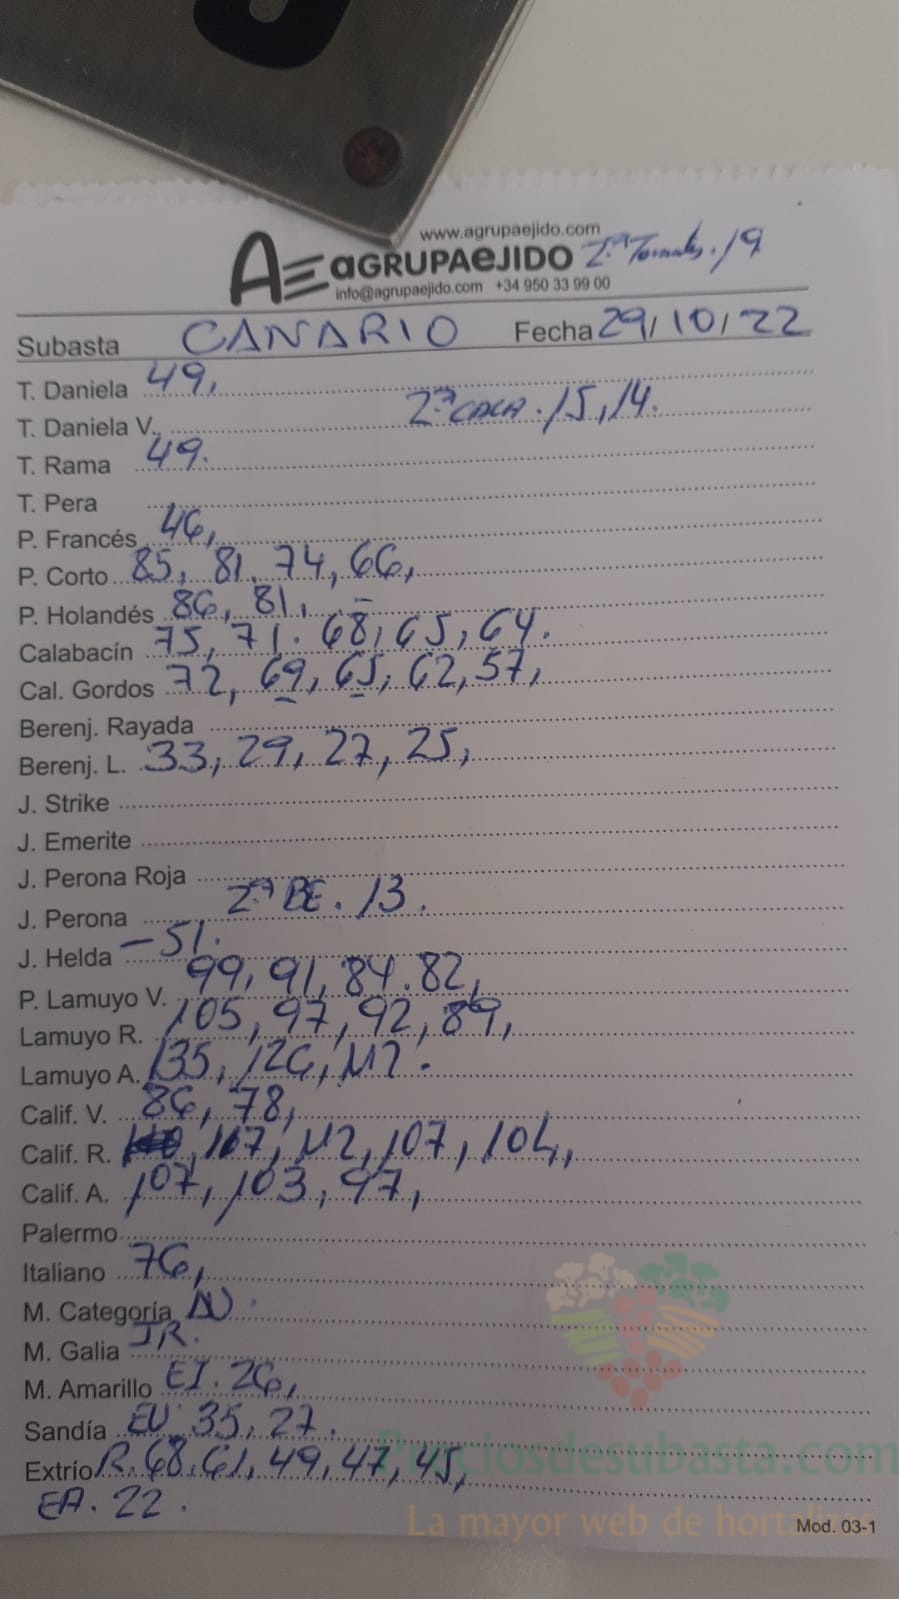 www.agrupaejido.com
AE aGRUPAeJIDO 2.ª Tomates. 19
info@agrupaejido.com +34 950 33 99 00
Subasta CANARIO Fecha 29/10/22
T. Daniela 49,
T. Daniela V. 2.ª CALA. 15, 14.
T. Rama 49.
T. Pera
P. Francés 46,
P. Corto 85, 81, 74, 66,
P. Holandés 86, 81,
Calabacín 75, 71. 68, 65, 64.
Cal. Gordos 72, 69, 65, 62, 57,
Berenj. Rayada
Berenj. L. 33, 29, 27, 25,
J. Strike
J. Emerite
J. Perona Roja
J. Perona 2.ª BE. 13.
J. Helda - 51.
P. Lamuyo V. 99, 91, 84. 82,
Lamuyo R. 105, 97, 92, 89,
Lamuyo A. 135, 126, 117.
Calif. V. 86, 78,
Calif. R. 117, 112, 107, 104,
Calif. A. 107, 103, 97,
Palermo
Italiano 76,
M. Categoría
M. Galia
M. Amarillo EI. 26,
Sandía EV. 35, 27.
Extrío R. 68, 61, 49, 47, 45,
EA. 22.
Preciosdesubasta.com
La mayor web de hortalizas
Mod. 03-1